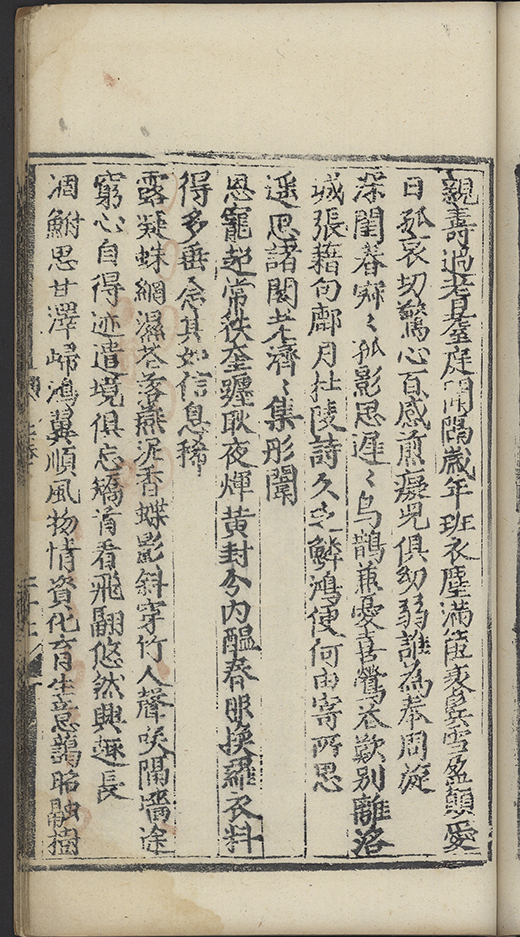 親壽過耆耋庭闈隔歲年班衣塵滿篋衰鬢雪盈顛愛
日孤哀切驚心百感煎癡兒俱幼弱誰為奉周旋
深閨春寂〻孤影思遲〻烏鵲兼憂喜鶯花歎別離洛
城張籍句鄜月杜陵詩久乏鱗鴻便何由寄所思
遥思諸閣老濟〻集彤闈
恩寵超常秩奎躔耿夜煇黄封分内醞春服換羅衣料
得多垂念其如信息稀
露凝蛛網濕花落燕泥香蝶影斜穿竹人聲咲隔墻途
窮心自得迹遣境俱忘矯首看飛翩悠然興趣長
涸鮒思甘澤歸鴻翼順風物情資化育生意藹昭融樹